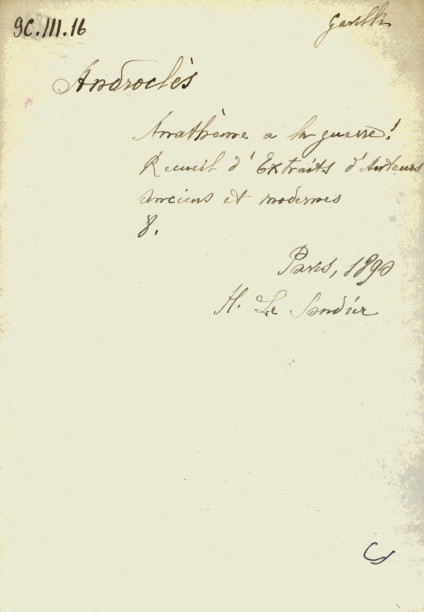 9C.III.16
Androclès
Anathème a la guerre!
Recueil d'Extraits d'Auteurs
anciens et modernes
8.
Paris, 1890
H. Le Soudier